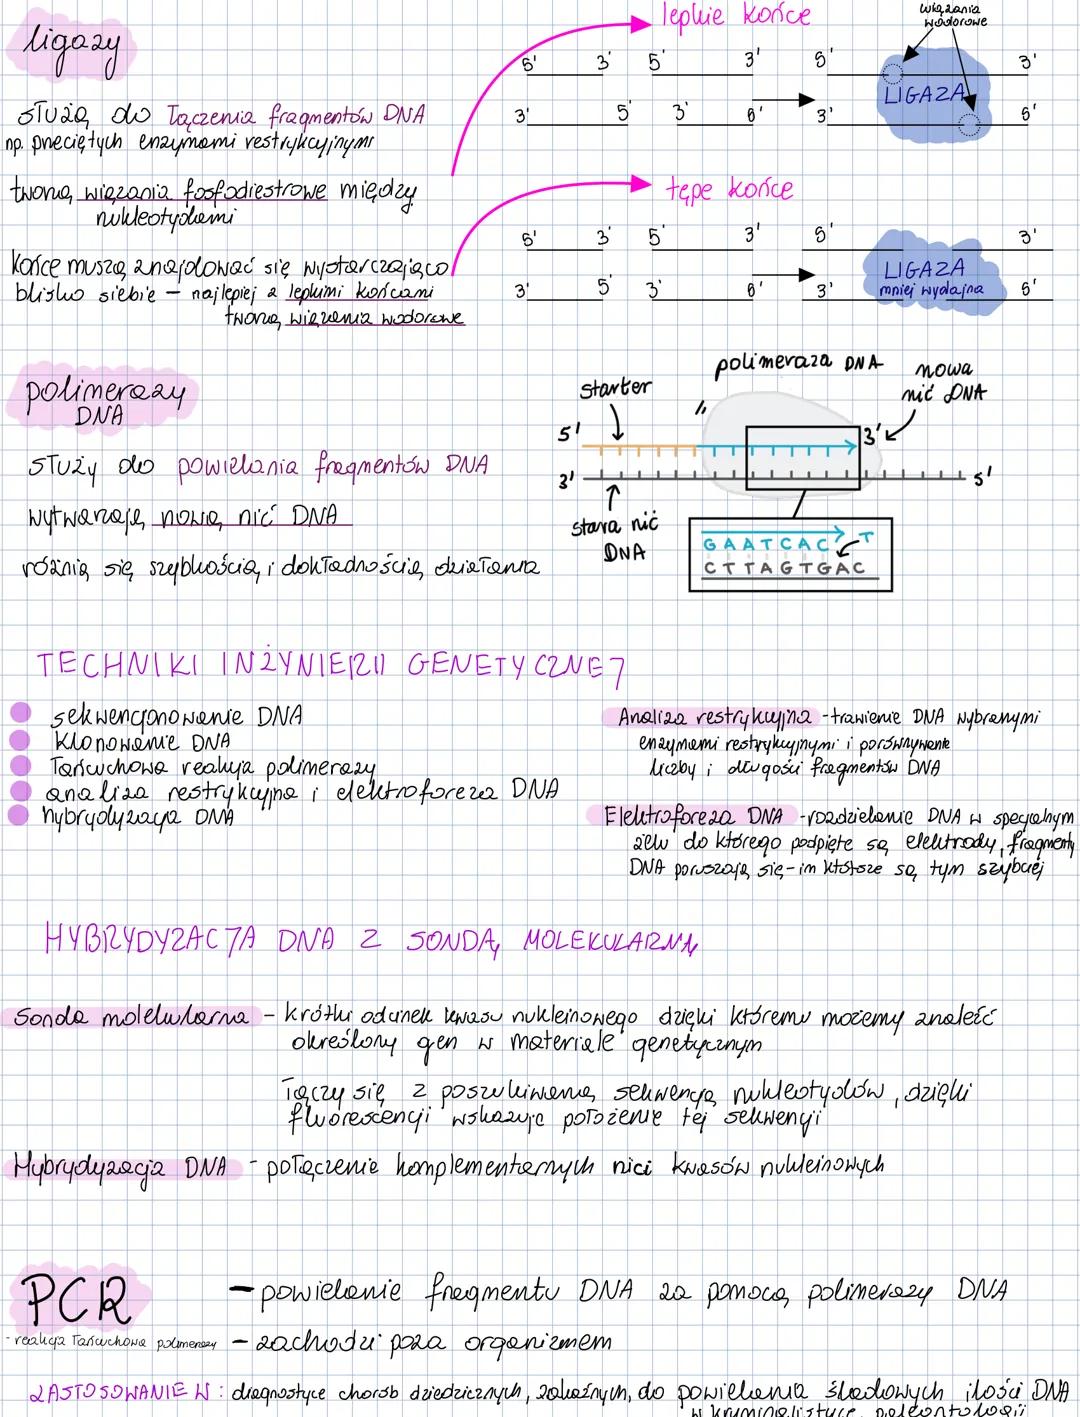 ligazy
lepkie końce
wiązania
wodorowe
5' 3' 5' 3' 5' 3'
LIGAZA
3' 5' 3' 5' 3' 5'
służą do łączenia fragmentów DNA
np. przeciętych enzymami restrykcyjnymi
tworzą wiązania fosfodiestrowe między
nukleotydami
tępe końce
5' 3' 5' 3' 5' 3'
LIGAZA
mniej wydajna
3' 5' 3' 5' 3' 5'
końce muszą znajdować się wystarczająco
blisko siebie – najlepiej z lepkimi końcami
tworzą wiązania wodorowe
polimerazy
DNA
służy do powielania fragmentów DNA
wytwarzają nową nić DNA
różnią się szybkością i dokładnością działania
polimeraza DNA
starter
nowa
nić DNA
5' 3'
3' 5'
stara nić
DNA
GAATCAC T
CTTAGTGAC
TECHNIKI INŻYNIERII GENETYCZNEJ
sekwencjonowanie DNA
klonowanie DNA
łańcuchowa reakcja polimerazy
analiza restrykcyjna i elektroforeza DNA
hybrydyzacja DNA
Analiza restrykcyjna - trawienie DNA wybranymi
enzymami restrykcyjnymi i porównywanie
liczby i długości fragmentów DNA
Elektroforeza DNA - rozdzielanie DNA w specjalnym
żelu do którego podpięte są elektrody, fragmenty
DNA poruszają się - im krótsze są tym szybciej
HYBRYDYZACJA DNA Z SONDĄ MOLEKULARNĄ
Sonda molekularna - krótki odcinek kwasu nukleinowego dzięki któremu możemy znaleźć
określony gen w materiale genetycznym
łączy się z poszukiwaną sekwencją nukleotydów, dzięki
fluorescencji wskazuje położenie tej sekwencji
Hybrydyzacja DNA - połączenie komplementarnych nici kwasów nukleinowych
PCR
- reakcja łańcuchowa polimerazy
– powielanie fragmentu DNA za pomocą polimerazy DNA
– zachodzi poza organizmem
ZASTOSOWANIE W: diagnostyce chorób dziedzicznych, zakaźnych, do powielania śladowych ilości DNA
w kryminalistyce, paleontologii